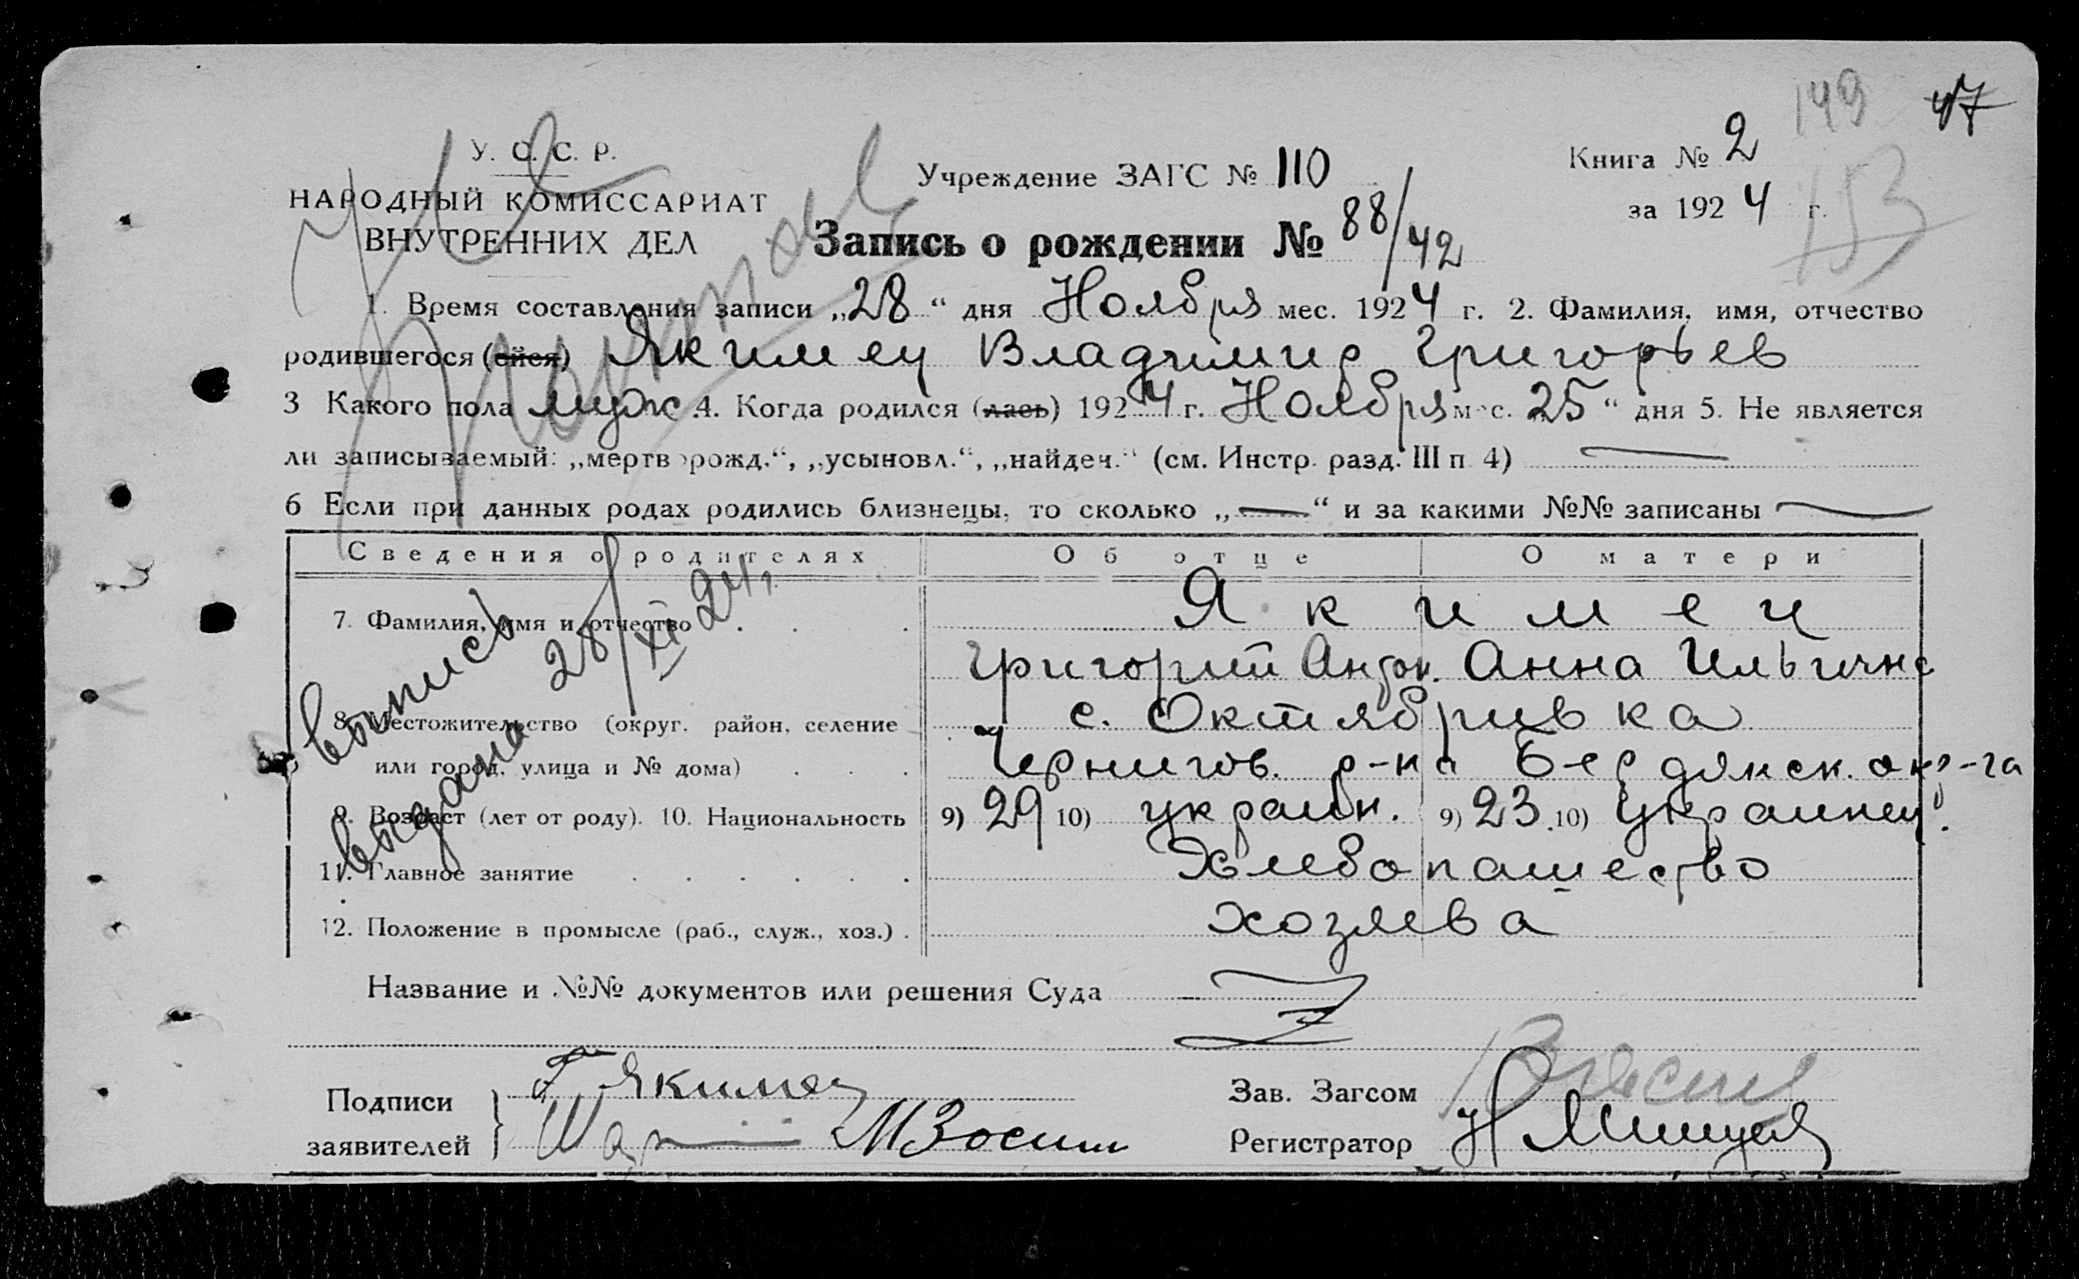 149 47
У. С. С. Р.
НАРОДНЫЙ КОМИССАРИАТ
ВНУТРЕННИХ ДЕЛ
Учреждение ЗАГС № 110
Книга № 2
за 1924 г.
153
Запись о рождении № 88/42
1. Время составления записи „28“ дня Ноября мес. 1924 г. 2. Фамилия, имя, отчество
родившегося (ейся) Якимец Владимир Григорьев
3 Какого пола муж. 4. Когда родился (лась) 1924 г. Ноября мес. 25“ дня 5. Не является
ли записываемый: „мертворожд.“, „усыновл.“, „найден.“ (см. Инстр. разд. III п 4) —
6 Если при данных родах родились близнецы, то сколько „—“ и за какими №№ записаны —
Сведения о родителях Об отце О матери
7. Фамилия, имя и отчество . . . Якимец
Григорий Андрон. Анна Ильична
8. Местожительство (округ, район, селение с. Октябривка
или город, улица и № дома) . . . Чернигов. р-на Бердянск. окр-га
9. Возраст (лет от роду). 10. Национальность 9) 29 10) украин. 9) 23. 10) Украинец.
11. Главное занятие . . . . . . Хлебопашество
12. Положение в промысле (раб., служ., хоз.) . хозяева
выпись
выдана 28/XI 24 г.
Название и №№ документов или решения Суда
Подписи
заявителей
Г Якимец
Зав. Загсом
Регистратор